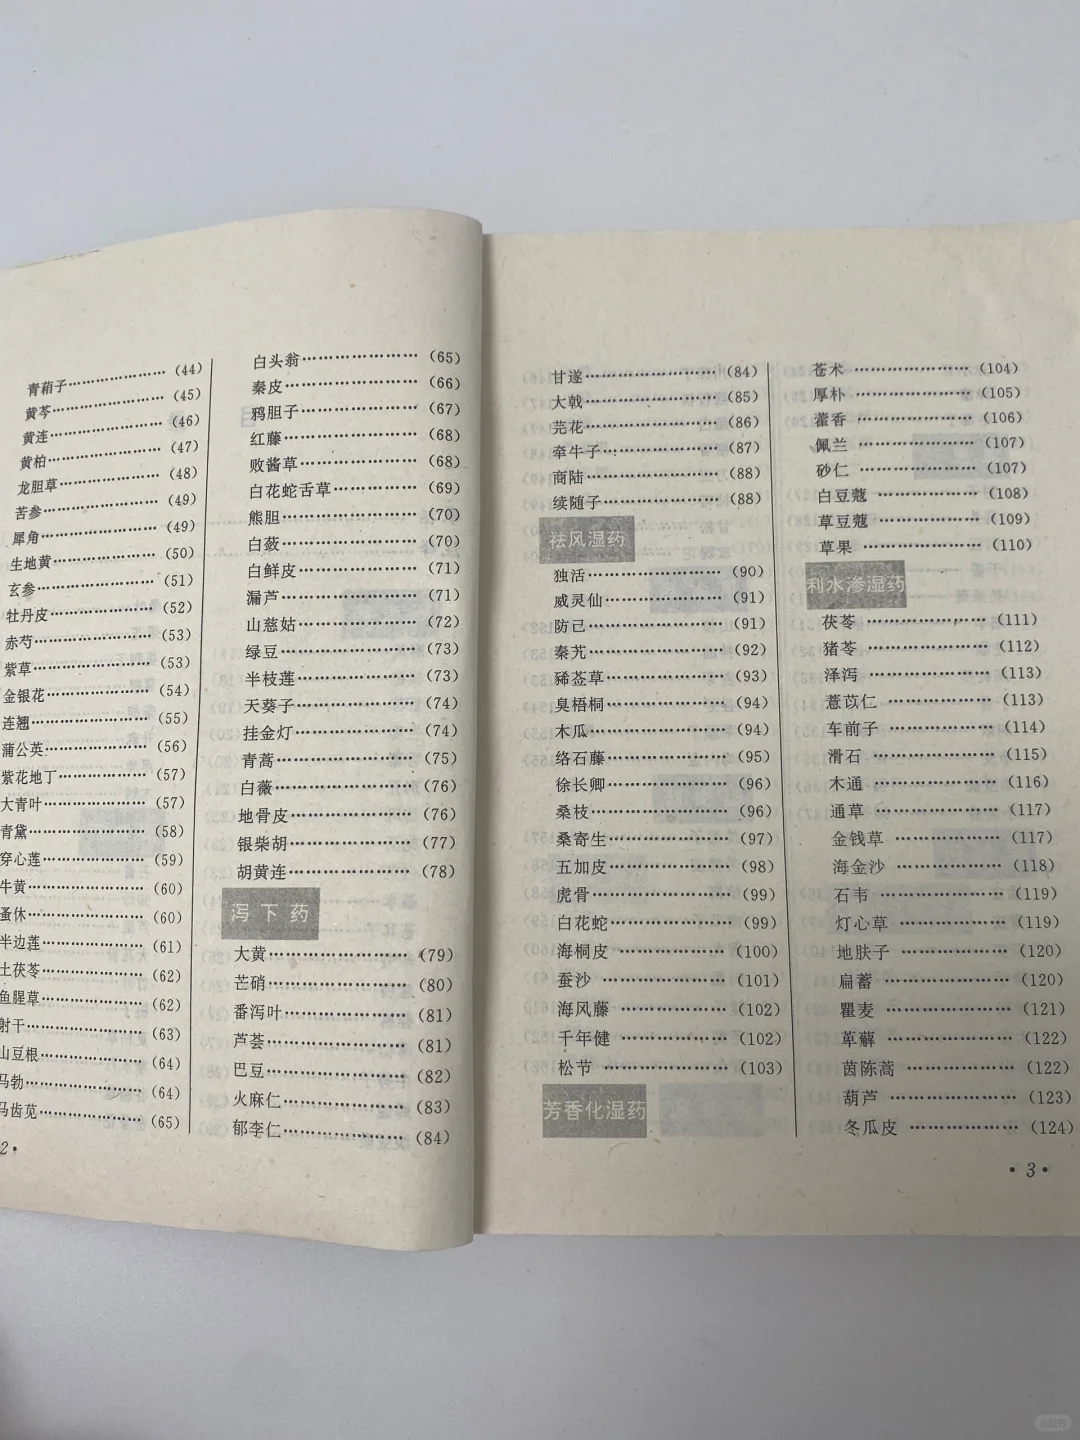 青葙子……………………(44)
黄芩……………………(45)
黄连……………………(46)
黄柏……………………(47)
龙胆草……………………(48)
苦参……………………(49)
犀角……………………(49)
生地黄……………………(50)
玄参……………………(51)
牡丹皮……………………(52)
赤芍……………………(53)
紫草……………………(53)
金银花……………………(54)
连翘……………………(55)
蒲公英……………………(56)
紫花地丁……………………(57)
大青叶……………………(57)
青黛……………………(58)
穿心莲……………………(59)
牛黄……………………(60)
蚤休……………………(60)
半边莲……………………(61)
土茯苓……………………(62)
鱼腥草……………………(62)
射干……………………(63)
山豆根……………………(64)
马勃……………………(64)
马齿苋……………………(65)
2·
白头翁……………………(65)
秦皮……………………(66)
鸦胆子……………………(67)
红藤……………………(68)
败酱草……………………(68)
白花蛇舌草……………………(69)
熊胆……………………(70)
白蔹……………………(70)
白鲜皮……………………(71)
漏芦……………………(71)
山慈姑……………………(72)
绿豆……………………(73)
半枝莲……………………(73)
天葵子……………………(74)
挂金灯……………………(74)
青蒿……………………(75)
白薇……………………(76)
地骨皮……………………(76)
银柴胡……………………(77)
胡黄连……………………(78)
泻下药
大黄……………………(79)
芒硝……………………(80)
番泻叶……………………(81)
芦荟……………………(81)
巴豆……………………(82)
火麻仁……………………(83)
郁李仁……………………(84)
甘遂……………………(84)
大戟……………………(85)
芫花……………………(86)
牵牛子……………………(87)
商陆……………………(88)
续随子……………………(88)
祛风湿药
独活……………………(90)
威灵仙……………………(91)
防己……………………(91)
秦艽……………………(92)
豨莶草……………………(93)
臭梧桐……………………(94)
木瓜……………………(94)
络石藤……………………(95)
徐长卿……………………(96)
桑枝……………………(96)
桑寄生……………………(97)
五加皮……………………(98)
虎骨……………………(99)
白花蛇……………………(99)
海桐皮……………………(100)
蚕沙……………………(101)
海风藤……………………(102)
千年健……………………(102)
松节……………………(103)
芳香化湿药
苍术……………………(104)
厚朴……………………(105)
藿香……………………(106)
佩兰……………………(107)
砂仁……………………(107)
白豆蔻……………………(108)
草豆蔻……………………(109)
草果……………………(110)
利水渗湿药
茯苓……………………(111)
猪苓……………………(112)
泽泻……………………(113)
薏苡仁……………………(113)
车前子……………………(114)
滑石……………………(115)
木通……………………(116)
通草……………………(117)
金钱草……………………(117)
海金沙……………………(118)
石韦……………………(119)
灯心草……………………(119)
地肤子……………………(120)
扁蓄……………………(120)
瞿麦……………………(121)
萆薢……………………(122)
茵陈蒿……………………(122)
葫芦……………………(123)
冬瓜皮……………………(124)
·3·